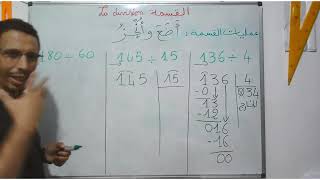 La division القسمة
عمليات القسمة: أضع وأنجز
136 ÷ 4
145 ÷ 15
480 ÷ 60
136 | 4
-0↓ | 034
13
-12
016
-16
00
145 | 15